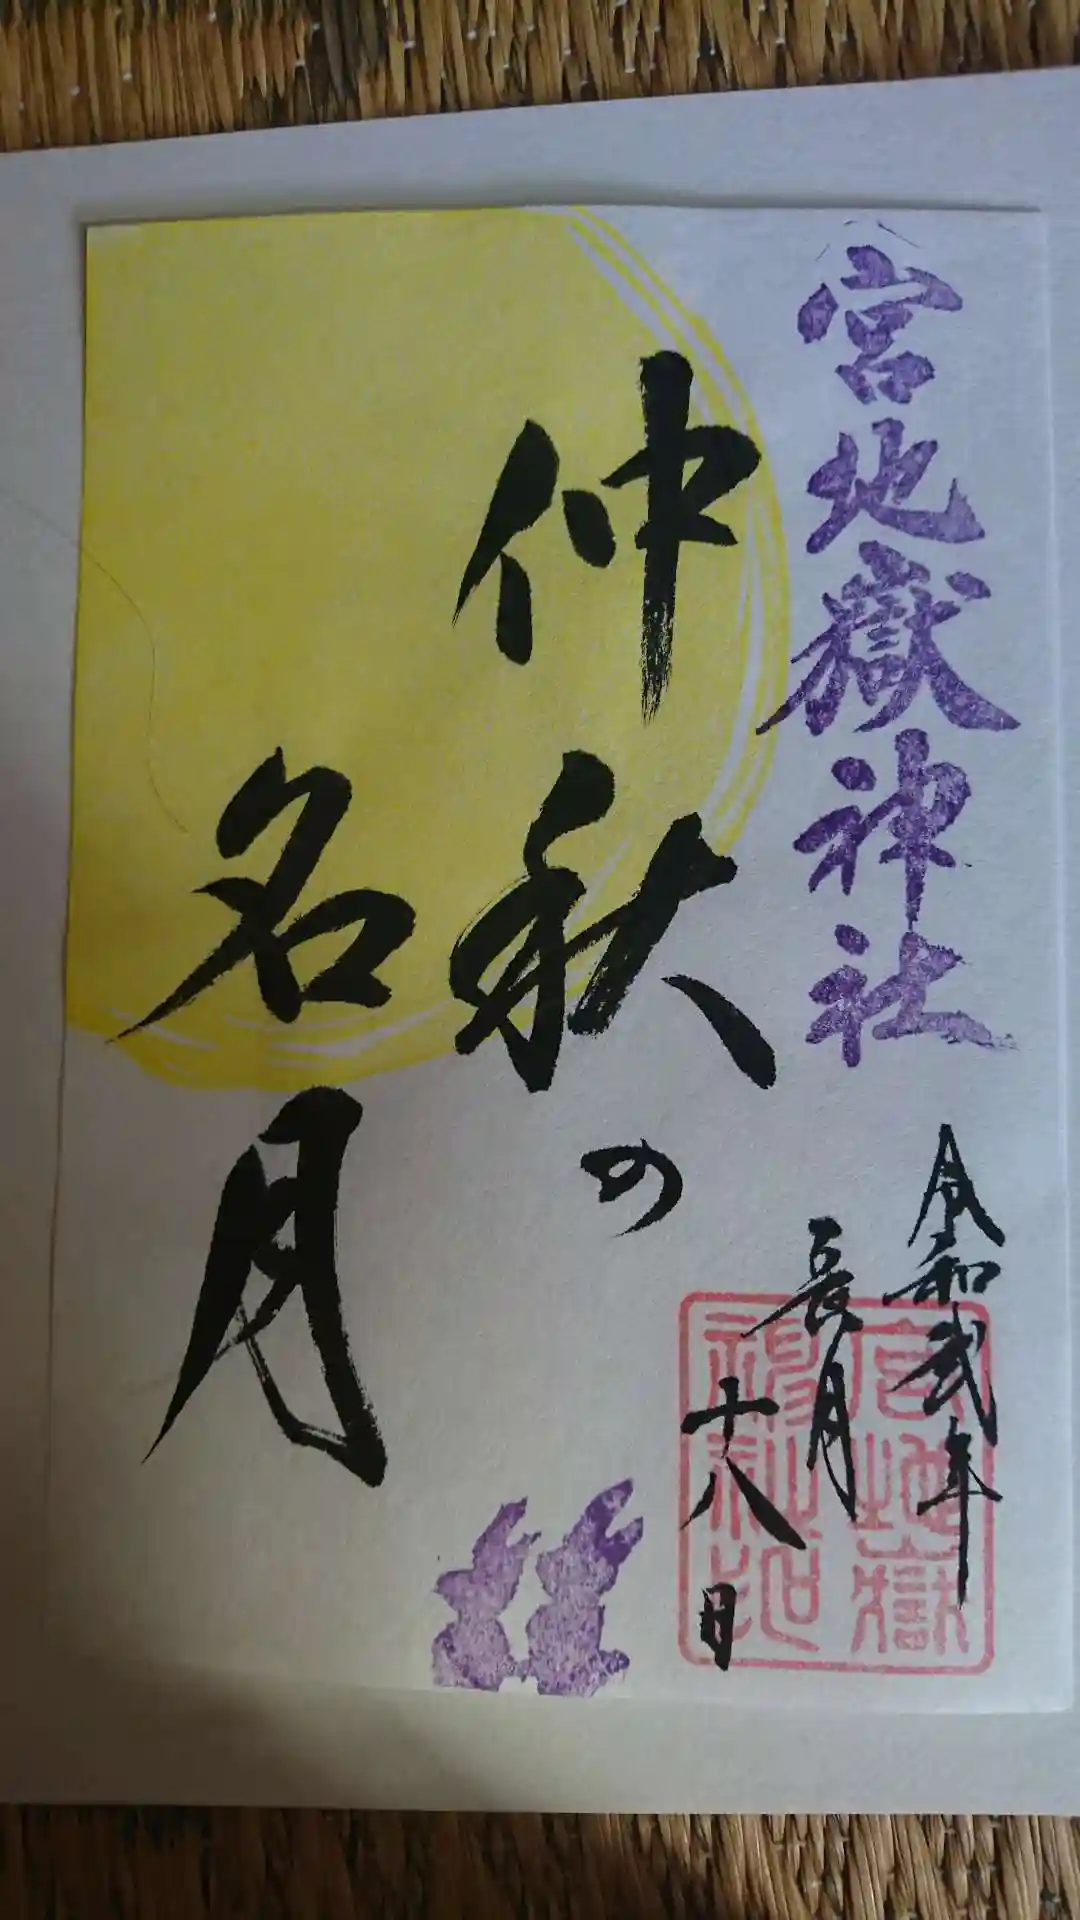 宮地嶽神社
令和弐年
長月
十八日
仲秋の
名月
宮地嶽